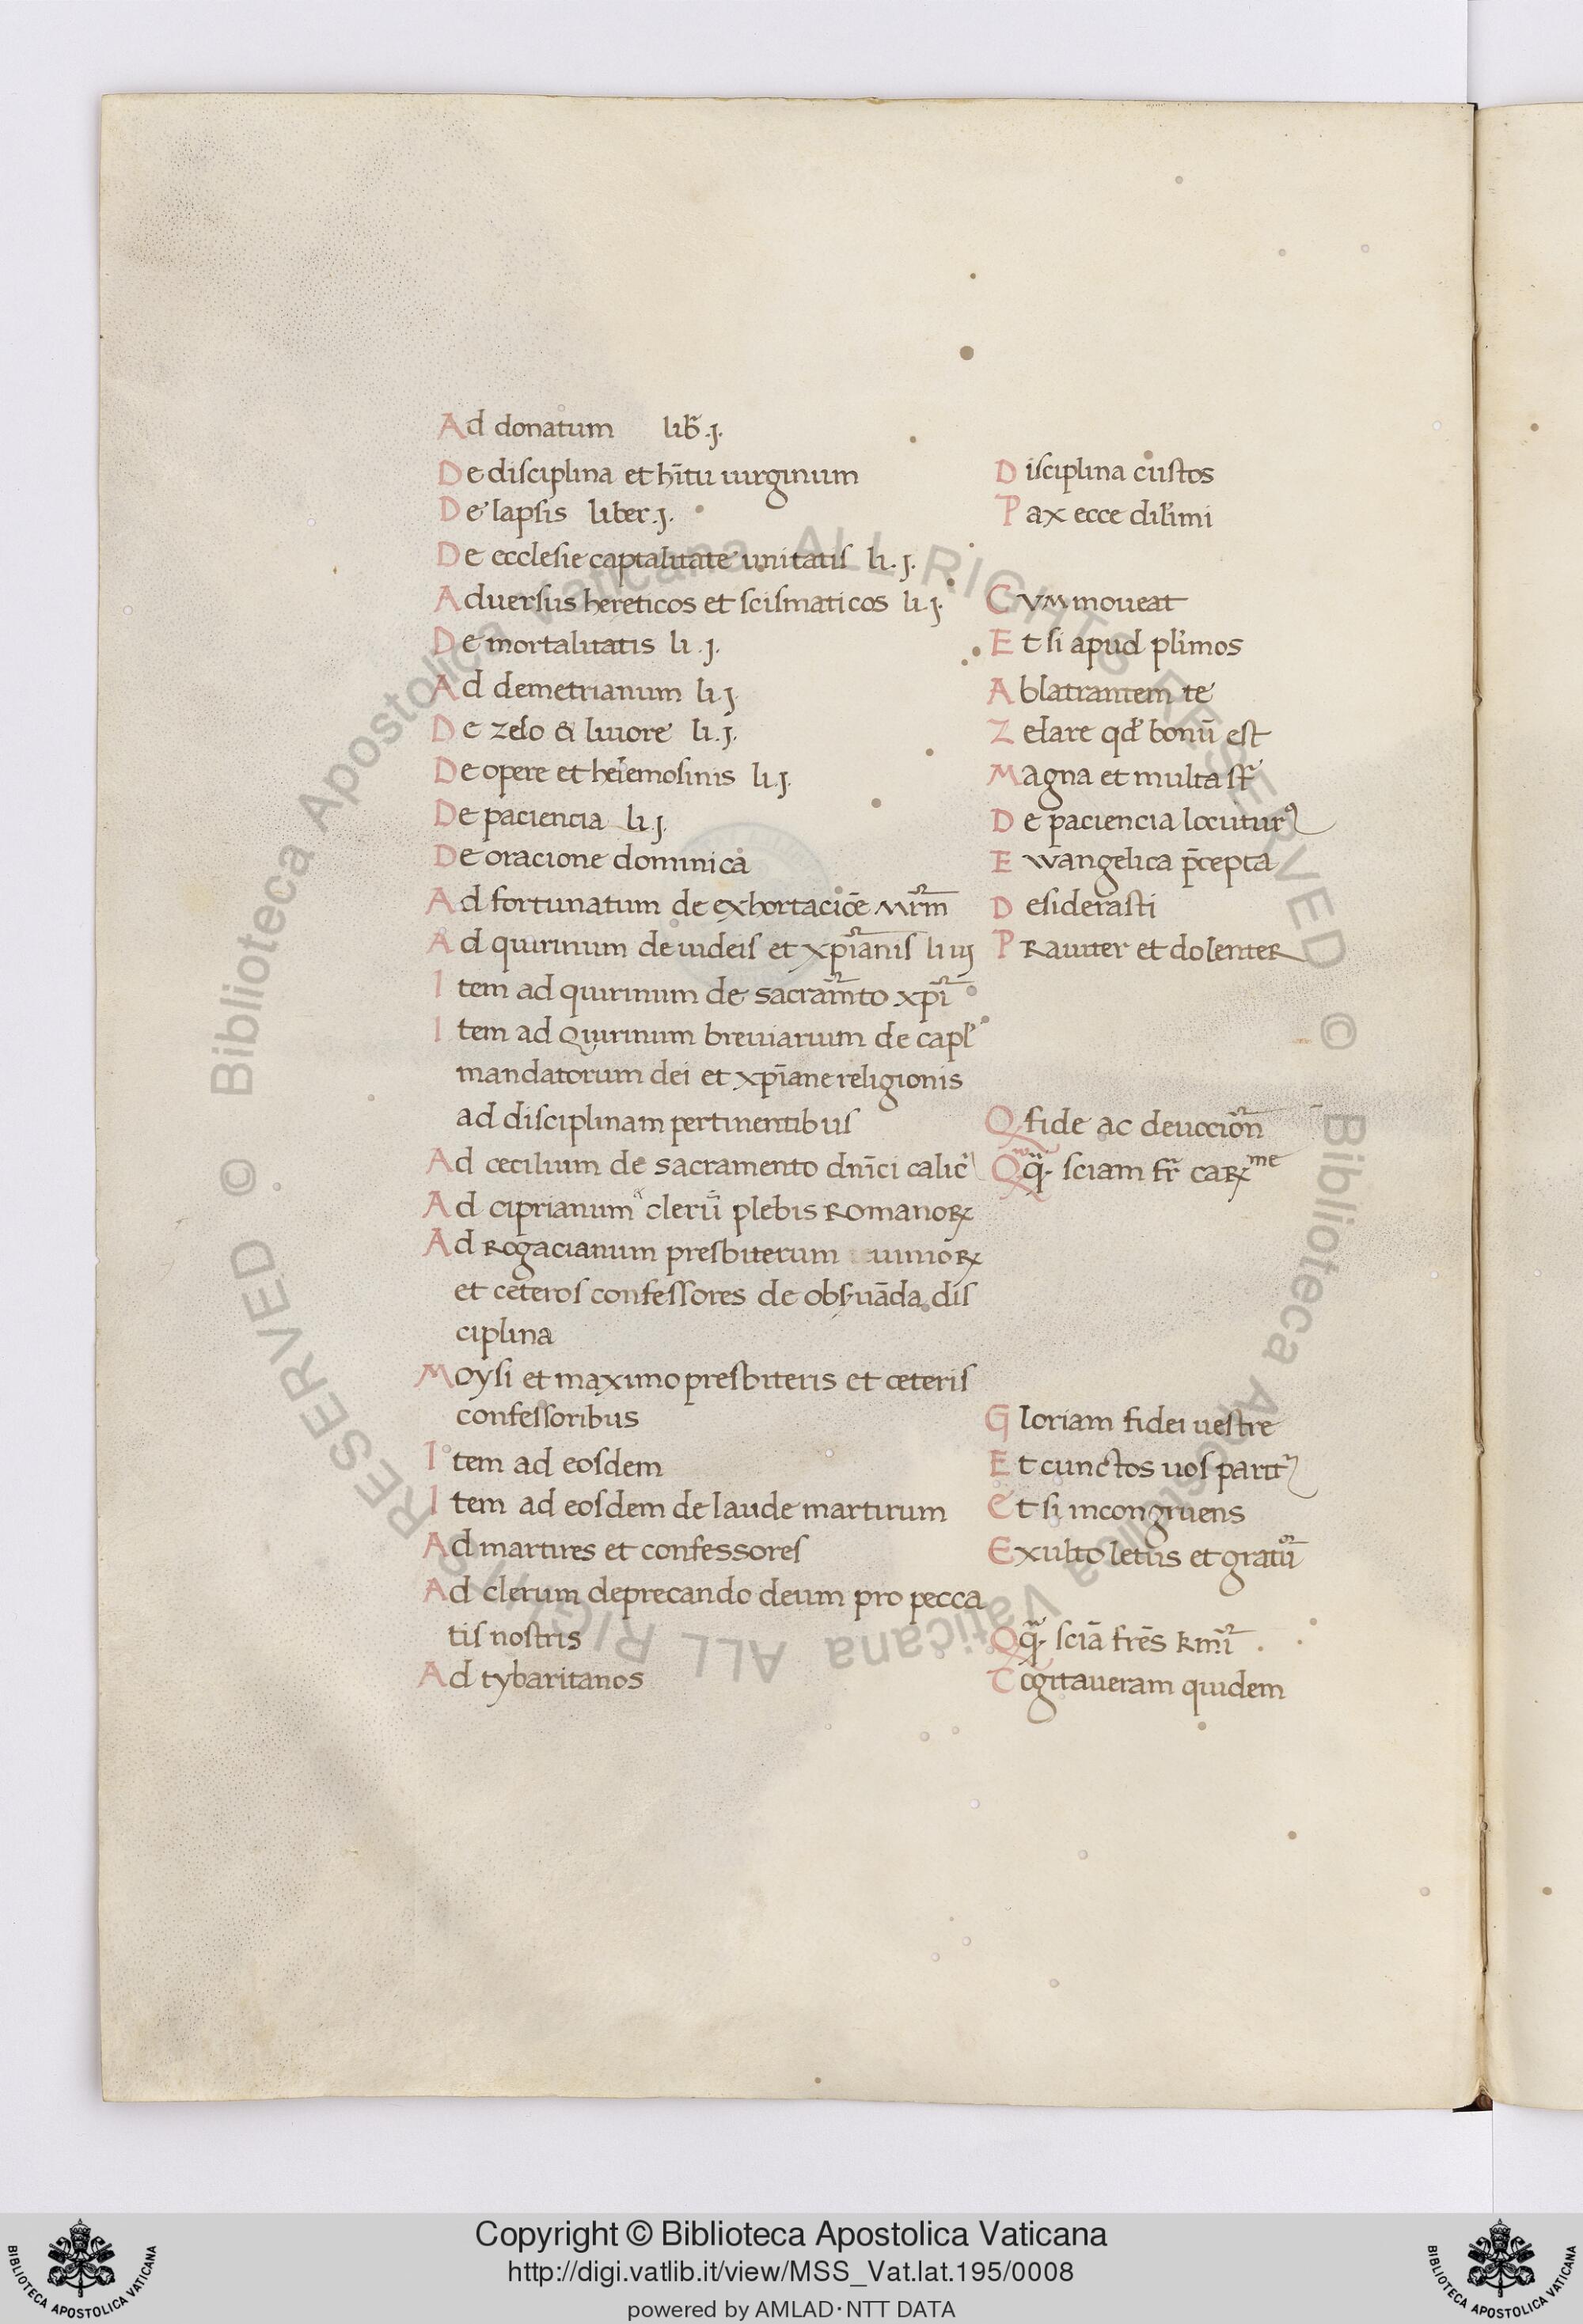 Ad donatum libr̄ .j.
De disciplina et hītu uirginum
De lapsis liber .j.
De ecclesie captalitate unitatis li. j.
Aduersus hereticos et scismaticos li.j.
De mortalitatis li .j.
Ad demetrianum li.j.
De zelo & liuore li.j.
De opere et helemosinis li.j.
De paciencia li.j.
De oracione dominica
Ad fortunatum de exhortaciōe mr̄m
Ad quirinum de iudeis et xp̄ianis li iij
Item ad quirinum de sacram̄to xp̄i
Item ad Quirinum breuiarium de capl'
mandatorum dei et xp̄iane religionis
ad disciplinam pertinentibus
Ad cecilium de sacramento dn̄ici calic̄
Ad ciprianum clerū plebis Romanoꝝ
Ad Rogacianum presbiterum uiuinoꝝ
et ceteros confessores de obs̄uāda dis
ciplina
Moysi et maximo presbiteris et ceteris
confessoribus
Item ad eosdem
Item ad eosdem de laude martirum
Ad martires et confessores
Ad clerum deprecando deum pro pecca
tis nostris
Ad tybaritanos
Disciplina custos
Pax ecce dil'imi
CVM moueat
Et si apud pl'imos
Ablatrantem te
Zelare qd' bonū est
Magna et multa st̄
De paciencia locutur᾿
Ewangelica p̄cepta
Desiderasti
PRauiter et dolenter
Q fide ac deuocion̄
Qq̄ꝗ sciam fr̄ caꝝme
Gloriam fidei uestre
Et cunctos uos parit᾿
Et si incongruens
Exulto letus et gratū
Qq̄ꝗ sciā frēs km̄i .
Cogitaueram quidem
Copyright © Biblioteca Apostolica Vaticana
http://digi.vatlib.it/view/MSS_Vat.lat.195/0008
powered by AMLAD·NTT DATA
BIBLIOTECA APOSTOLICA VATICANA
BIBLIOTECA APOSTOLICA VATICANA
© Biblioteca Apostolica Vaticana ALL RIGHTS RESERVED © Biblioteca Apostolica Vaticana ALL RIGHTS RESERVED